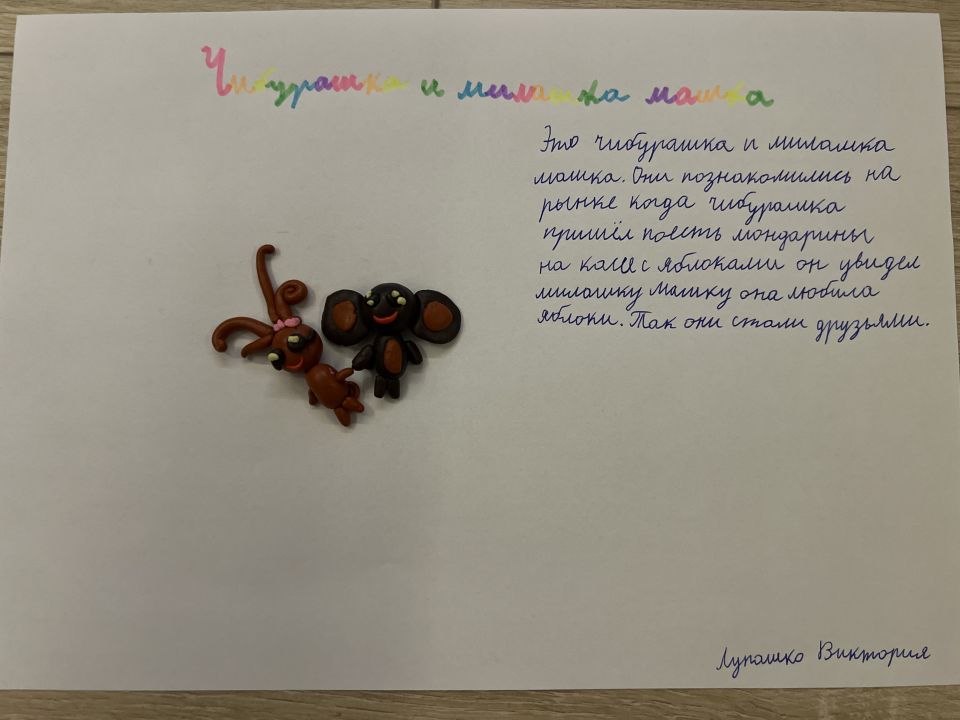 Чибурашка и милашка машка
Это чибурашка и милашка
машка. Они познакомились на
рынке когда чибурашка
пришёл поесть мондарины
на касе с яблоками он увидел
милашку Машку она любила
яблоки. Так они стали друзьями.
Лупашко Виктория